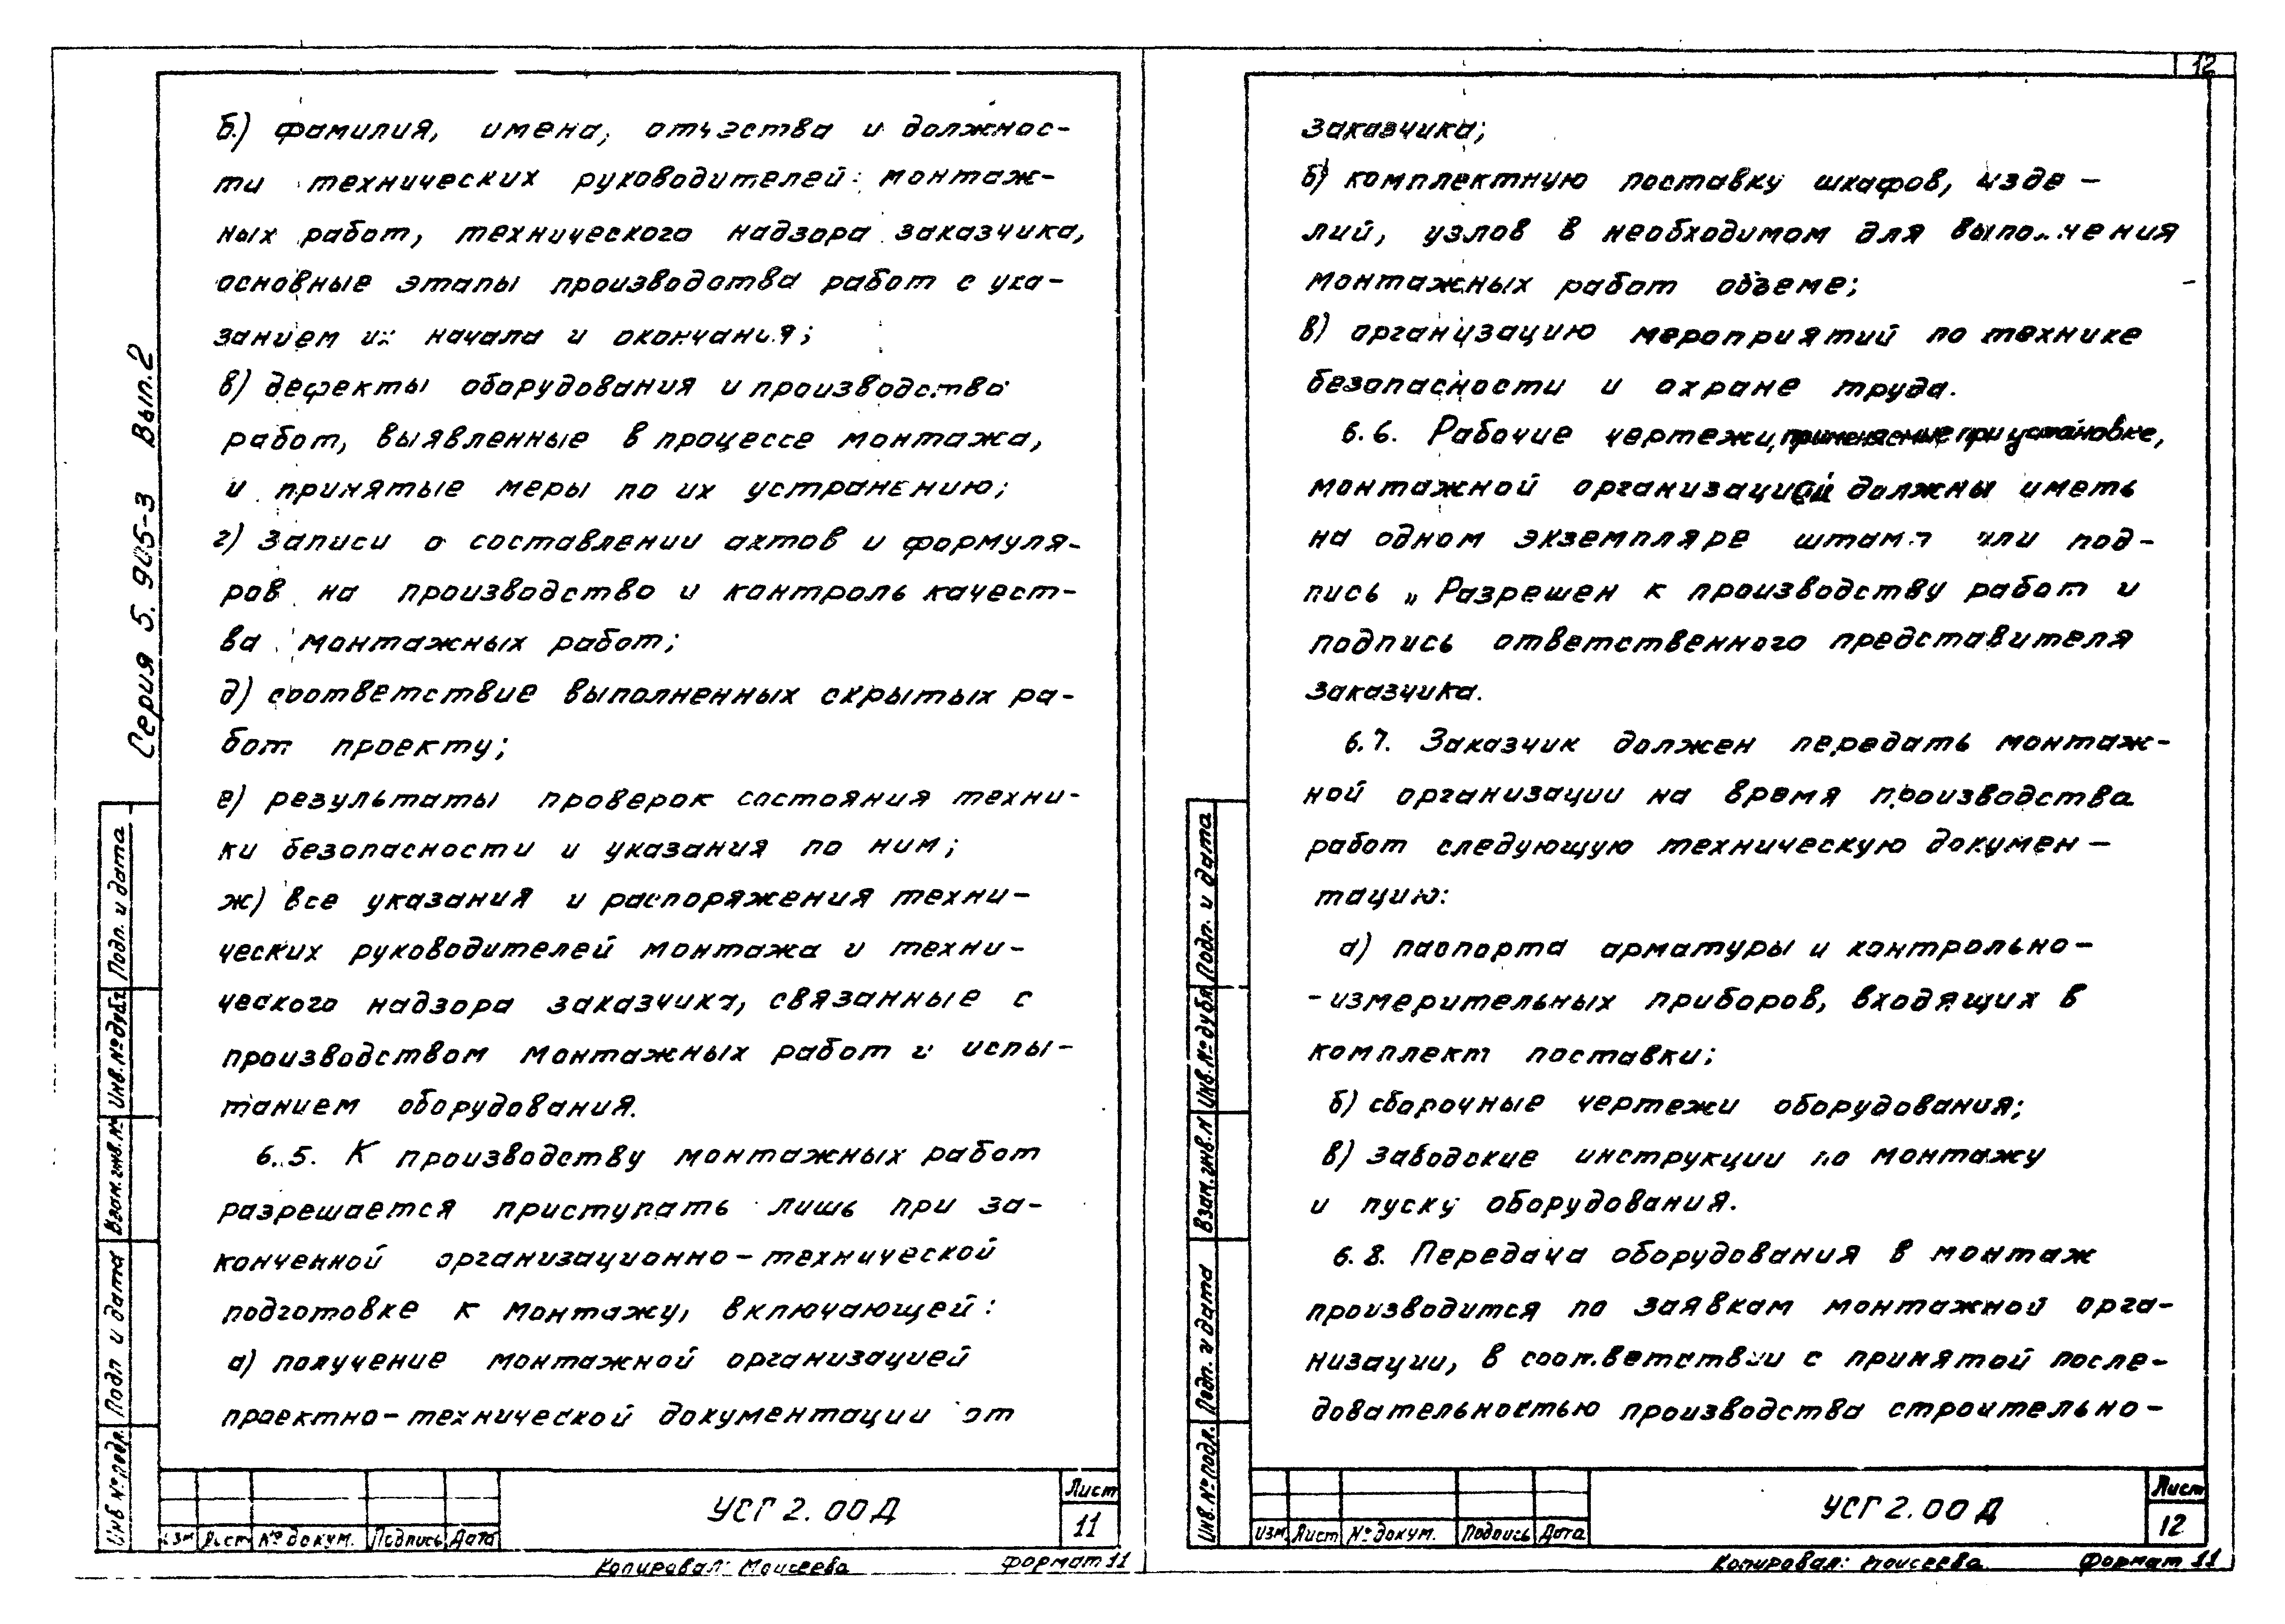 12
б) фамилия, имена, отчества и должнос-
ти технических руководителей монтаж-
ных работ, технического надзора заказчика,
основные этапы производства работ с ука-
занием их начала и окончания;
в) дефекты оборудования и производства
работ, выявленные в процессе монтажа,
и принятые меры по их устранению;
г) записи о составлении актов и формуля-
ров на производство и контроль качест-
ва монтажных работ;
д) соответствие выполненных скрытых ра-
бот проекту;
е) результаты проверок состояния техни-
ки безопасности и указания по ним;
ж) все указания и распоряжения техни-
ческих руководителей монтажа и техни-
ческого надзора заказчика, связанные с
производством монтажных работ и испы-
танием оборудования.
6.5. К производству монтажных работ
разрешается приступать лишь при за-
конченной организационно-технической
подготовке к монтажу, включающей:
а) получение монтажной организацией
проектно-технической документации от
Серия 5.905-3 Вып.2
Подп. и дата
Инв.№ дубл
Взам.инв.№
Подп и дата
Инв № подл.
Изм Лист № докум. Подпись Дата
УСГ 2.00 Д
Лист
11
Копировал: Моисеева формат 11
заказчика;
б) комплектную поставку шкафов, изде-
лий, узлов в необходимом для выполнения
монтажных работ объеме;
в) организацию мероприятий по технике
безопасности и охране труда.
6.6. Рабочие чертежи, применяемые при установке,
монтажной организацией должны иметь
на одном экземпляре штамп или под-
пись „Разрешен к производству работ и
подпись ответственного представителя
заказчика.
6.7. Заказчик должен передать монтаж-
ной организации на время производства
работ следующую техническую докумен-
тацию:
а) паспорта арматуры и контрольно-
-измерительных приборов, входящих в
комплект поставки;
б) сборочные чертежи оборудования;
в) заводские инструкции по монтажу
и пуску оборудования.
6.8. Передача оборудования в монтаж
производится по заявкам монтажной орга-
низации, в соответствии с принятой после-
довательностью производства строительно-
Подп. и дата
Инв.№ дубл
Взам.инв.№
Подп. и дата
Инв.№ подл.
Изм Лист № докум. Подпись Дата
УСГ 2.00 Д
Лист
12
Копировал: Моисеева формат 11